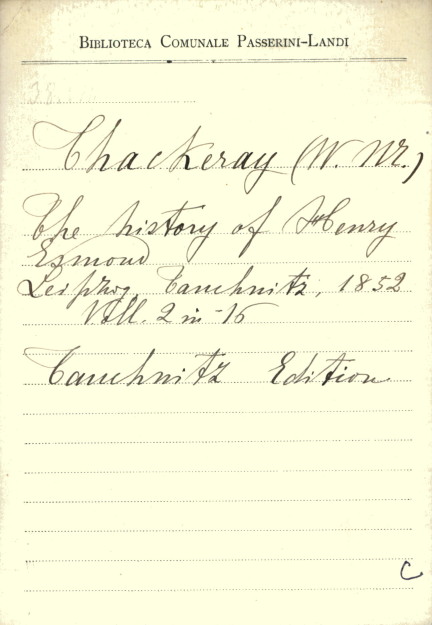 BIBLIOTECA COMUNALE PASSERINI-LANDI
Thackeray (W. M.)
The history of Henry
Esmond
Leipzig, Tauchnitz, 1852
Voll. 2 in-16
Tauchnitz Edition
C